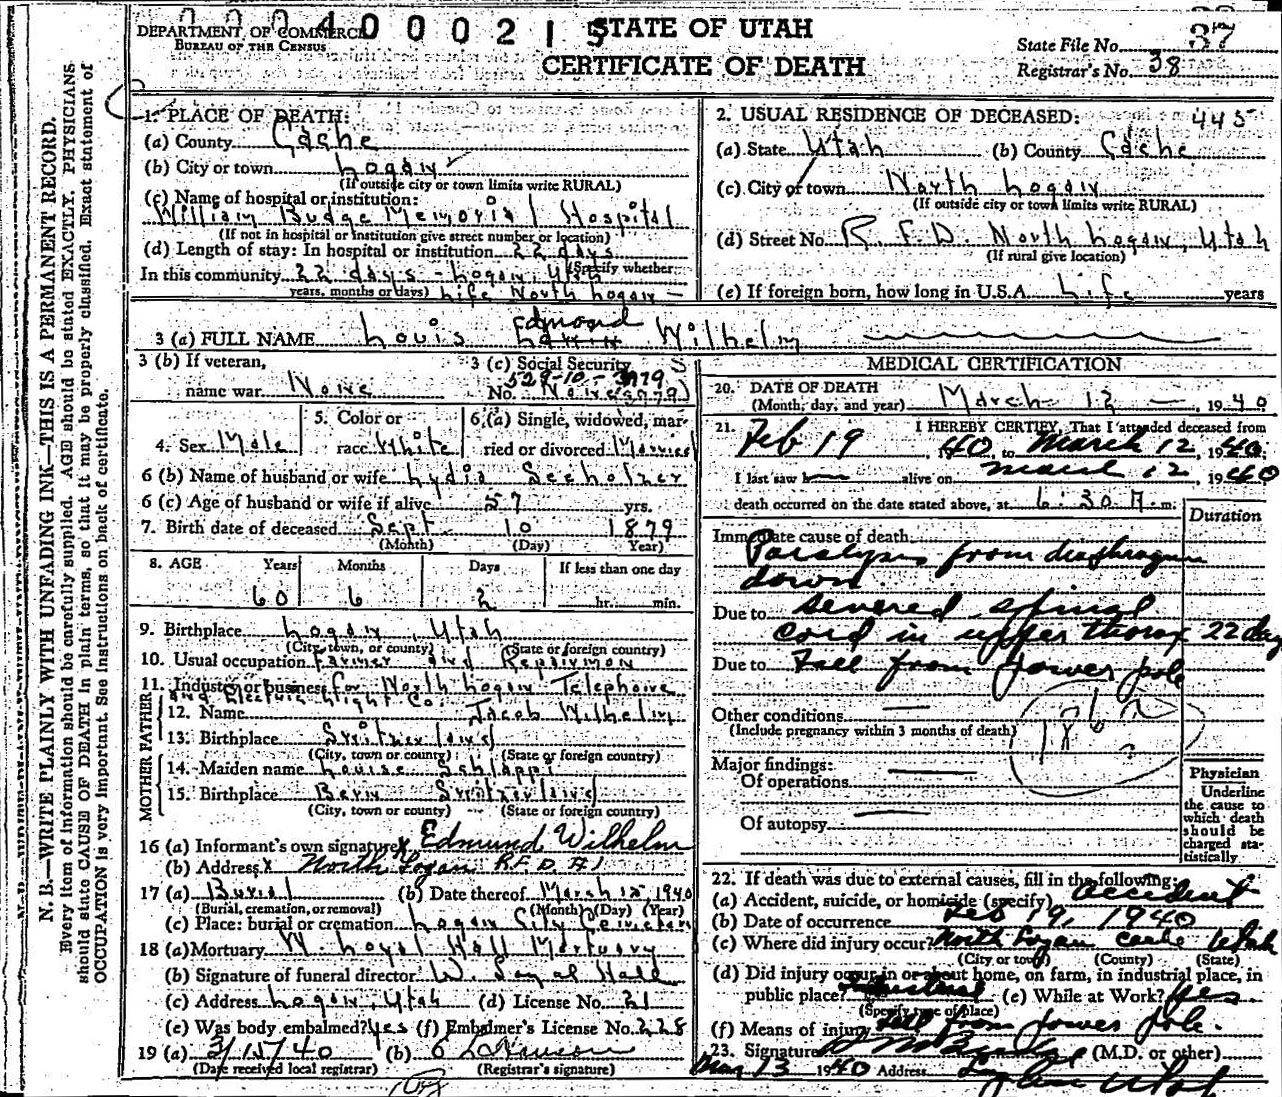 DEPARTMENT OF COMMERCE
BUREAU OF THE CENSUS
STATE OF UTAH
CERTIFICATE OF DEATH
State File No. 37
Registrar's No. 38
N. B.—WRITE PLAINLY WITH UNFADING INK—THIS IS A PERMANENT RECORD.
Every item of information should be carefully supplied. AGE should be stated EXACTLY. PHYSICIANS
should state CAUSE OF DEATH in plain terms, so that it may be properly classified. Exact statement of
OCCUPATION is very important. See instructions on back of certificate.
1. PLACE OF DEATH:
(a) County Cache
(b) City or town Logan
(If outside city or town limits write RURAL)
(c) Name of hospital or institution:
William Budge Memorial Hospital
(If not in hospital or institution give street number or location)
(d) Length of stay: In hospital or institution 22 days
(Specify whether
In this community 22 days - Logan, Utah
years, months or days) Life North Logan -
2. USUAL RESIDENCE OF DECEASED: 445
(a) State Utah (b) County Cache
(c) City or town North Logan
(If outside city or town limits write RURAL)
(d) Street No. R. F. D. North Logan, Utah
(If rural give location)
(e) If foreign born, how long in U.S.A. Life years
3 (a) FULL NAME Louis Edmond Wilhelm
3 (b) If veteran,
name war None
3 (c) Social Security
No. 529-10-3979
4. Sex Male
5. Color or
race White
6 (a) Single, widowed, mar-
ried or divorced Married
6 (b) Name of husband or wife Lydia Seeholzer
6 (c) Age of husband or wife if alive 57 yrs.
7. Birth date of deceased Sept. 10 1879
(Month) (Day) Year)
8. AGE Years Months Days If less than one day
60 6 2 hr. min.
9. Birthplace Logan, Utah
(City, town, or county) (State or foreign country)
10. Usual occupation Farmer and Repairman
11. Industry or business for North Logan Telephone
and Electric Light Co.
FATHER
12. Name Jacob Wilhelm
13. Birthplace Switzerland
(City, town or county) (State or foreign country)
MOTHER
14. Maiden name Louise Schlappi
15. Birthplace Bern Switzerland
(City, town or county) (State or foreign country)
16 (a) Informant's own signature x Edmund Wilhelm
(b) Address x North Logan R.F.D. #1
17 (a) Burial (b) Date thereof March 15, 1940
(Burial, cremation, or removal) (Month) (Day) (Year)
(c) Place: burial or cremation Logan City Cemetery
18 (a) Mortuary W. Loyal Hall Mortuary
(b) Signature of funeral director W. Loyal Hall
(c) Address Logan, Utah (d) License No. 21
(e) Was body embalmed? Yes (f) Embalmer's License No. 228
19 (a) 3/15/40 (b)
(Date received local registrar) (Registrar's signature)
MEDICAL CERTIFICATION
20. DATE OF DEATH
(Month, day, and year) March 12 -, 1940
21. I HEREBY CERTIFY, That I attended deceased from
Feb 19, 1940, to March 12, 1940;
I last saw h alive on March 12, 1940
death occurred on the date stated above, at 6:30 A. m.
Duration
Immediate cause of death
Paralysis from diaphragm
down.
Due to severed spinal
cord in upper thorax 22 days
Due to Fall from power pole
Other conditions
(Include pregnancy within 3 months of death)
Major findings:
Of operations
Of autopsy
Physician
Underline
the cause to
which death
should be
charged sta-
tistically.
22. If death was due to external causes, fill in the following:
(a) Accident, suicide, or homicide (specify) Accident
(b) Date of occurrence Feb 19, 1940
(c) Where did injury occur? North Logan Cache Utah
(City or town) (County) (State)
(d) Did injury occur in or about home, on farm, in industrial place, in
public place? Industrial (e) While at Work? Yes
(Specify type of place)
(f) Means of injury Fall from power pole.
23. Signature (M.D. or other)
Mar 13 1940 Address Logan Utah